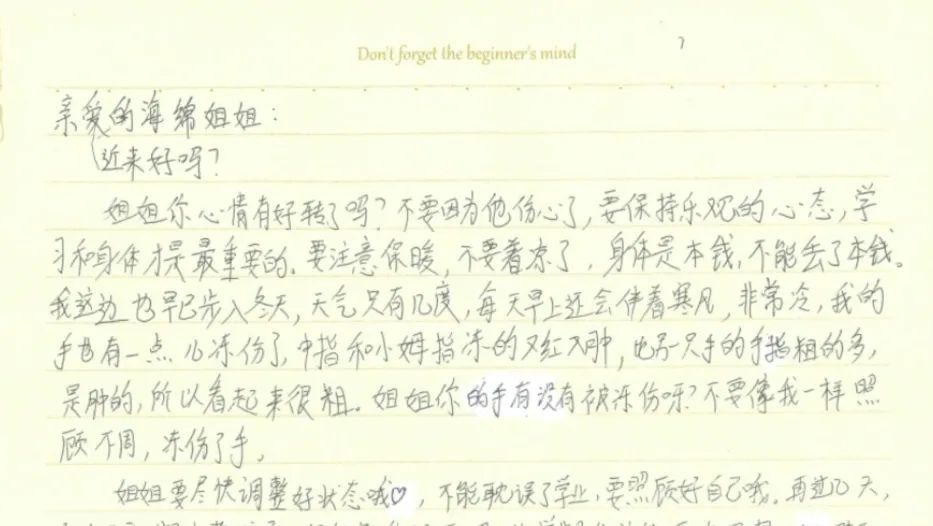 Don't forget the beginner's mind
亲爱的海绵姐姐:
近来好吗?
姐姐你心情有好转了吗?不要因为他伤心了,要保持乐观的心态,学
习和身体才是最重要的.要注意保暖,不要着凉了,身体是本钱,不能丢了本钱。
我这边也早已步入冬天,天气只有几度,每天早上还会伴着寒风,非常冷,我的
手也有一点儿冻伤了,中指和小姆指冻的又红又肿,比另一只手的手指粗的多,
是肿的,所以看起来很粗.姐姐你的手有没有被冻伤呀?不要像我一样照
顾不周,冻伤了手。
姐姐要尽快调整好状态哦♡,不能耽误了学业,要照顾好自己哦.再过几天,